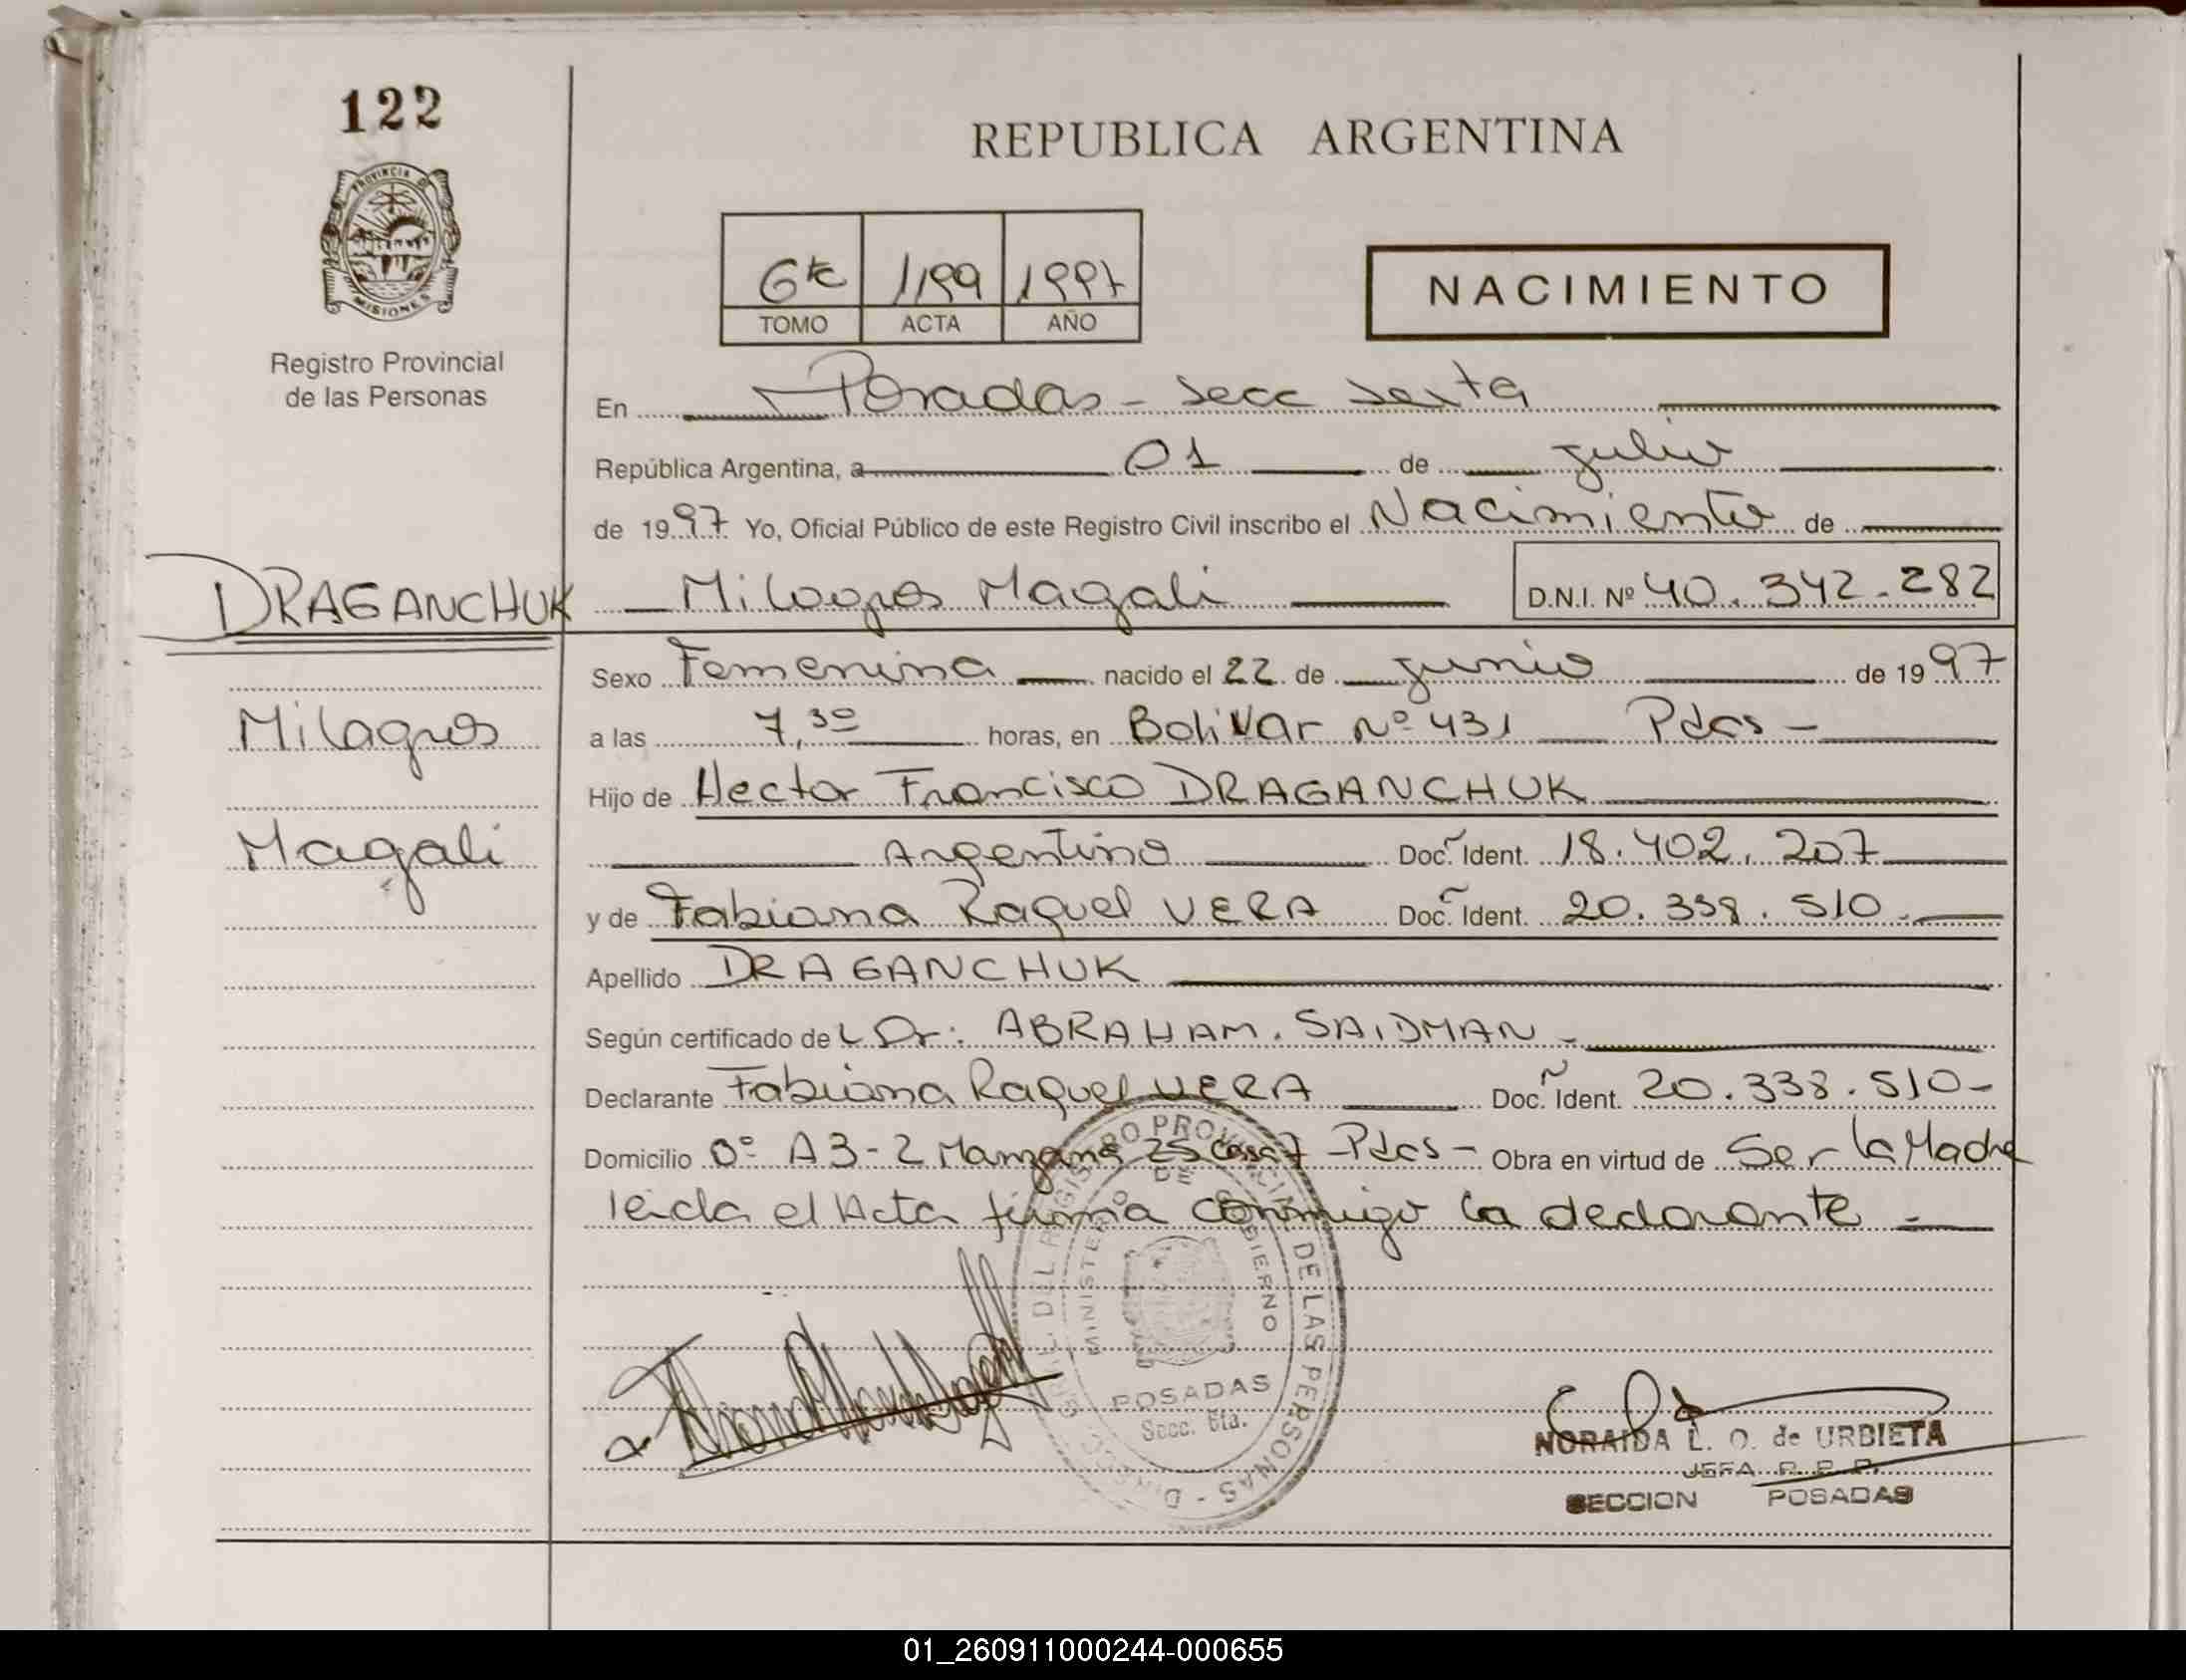 122
PROVINCIA DE
MISIONES
Registro Provincial
de las Personas
REPUBLICA ARGENTINA
6to 1199 1997
TOMO ACTA AÑO
NACIMIENTO
En Posadas - Secc Sexta
República Argentina, a 01 de julio
de 1997 Yo, Oficial Público de este Registro Civil inscribo el Nacimiento de
DRAGANCHUK Milagros Magali D.N.I. Nº 40.342.282
Sexo Femenina nacido el 22 de junio de 1997
Milagros
a las 7,30 horas, en Bolivar Nº 431 Pdas -
Hijo de Hector Francisco DRAGANCHUK
Magali
Argentino Doc. Ident. 18.402.207
y de Fabiana Raquel VERA Doc. Ident. 20.338.510.
Apellido DRAGANCHUK
Según certificado de L Dr: ABRAHAM. SAIDMAN -
Declarante Fabiana Raquel VERA Doc. Ident. 20.338.510-
Domicilio Bº A3-2 Manzana 25 Casa 7 - Pdas - Obra en virtud de Ser la Madre
leida el Acta firma conmigo la declarante -
REGISTRO PROVINCIAL DE LAS PERSONAS
MINISTERIO DE GOBIERNO
POSADAS
Secc. 6ta.
NORAIDA L. O. de URBIETA
JEFA R. P. P.
SECCION POSADAS
01_260911000244-000655